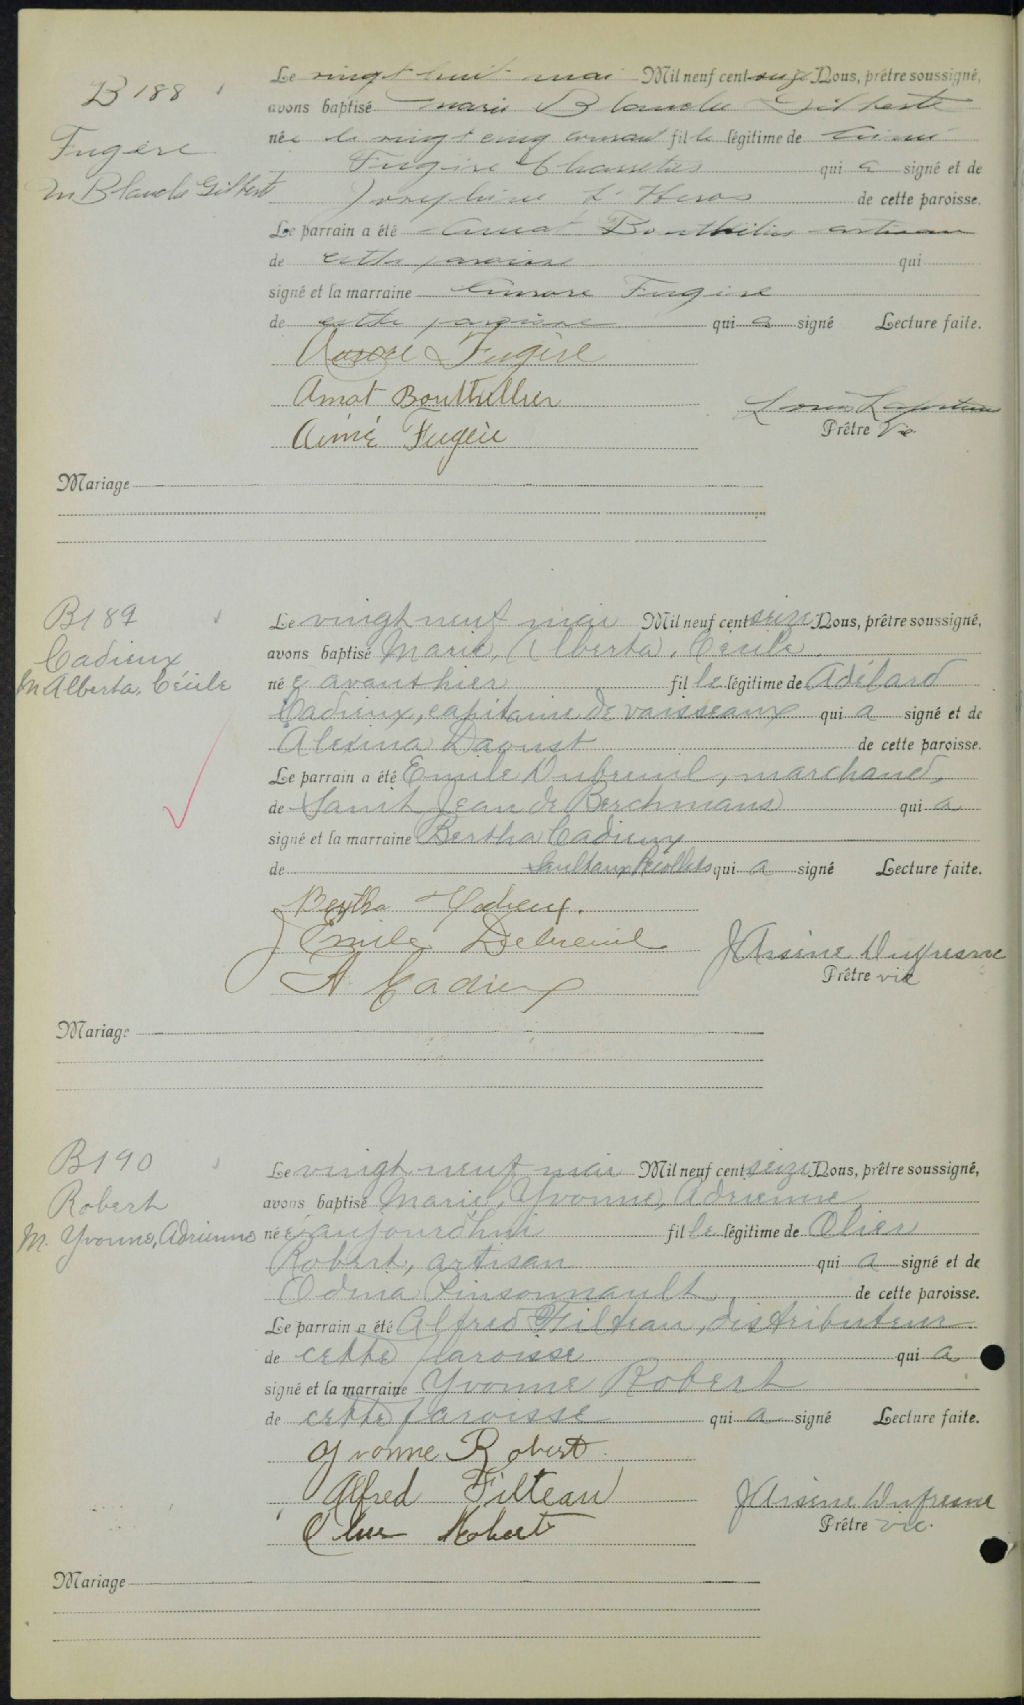 B 188
Fugère
M Blanche Gilberte
Le vingt huit mai Mil neuf cent seize Nous, prêtre soussigné,
avons baptisé Marie Blanche Gilberte
née le vingt cinq courant fille légitime de Aimé
Fugère qui a signé et de
Joséphine de cette paroisse.
Le parrain a été Amat Bouthillier artisan
de cette paroisse qui
signé et la marraine Aurore Fugère
de cette paroisse qui a signé Lecture faite.
Aurore Fugère
Amat Bouthillier
Aimé Fugère
Prêtre Vic
Mariage
B189
Cadieux
M Alberta, Cécile
Le vingt neuf mai Mil neuf cent seize Nous, prêtre soussigné,
avons baptisé Marie, Alberta, Cécile
née avanthier fille légitime de Adélard
Cadieux, capitaine de vaisseaux qui a signé et de
Alexina Daoust de cette paroisse.
Le parrain a été Emile Dubreuil, marchand,
de Saint Jean de Berchmans qui a
signé et la marraine Bertha Cadieux
de Sault aux Recollets qui a signé Lecture faite.
Bertha Cadieux.
J Emile Dubreuil
A Cadieux
J Arsène Dufresne
Prêtre vic
Mariage
B190
Robert
M. Yvonne, Adrienne
Le vingt neuf mai Mil neuf cent seize Nous, prêtre soussigné,
avons baptisé Marie, Yvonne, Adrienne
née aujourd'hui fille légitime de Olier
Robert, artisan qui a signé et de
Odina Pinsonnault de cette paroisse.
Le parrain a été Alfred Filteau, distributeur
de cette paroisse qui a
signé et la marraine Yvonne Robert
de cette paroisse qui a signé Lecture faite.
Yvonne Robert.
Alfred Filteau
Olier Robert
J Arsène Dufresne
Prêtre vic.
Mariage